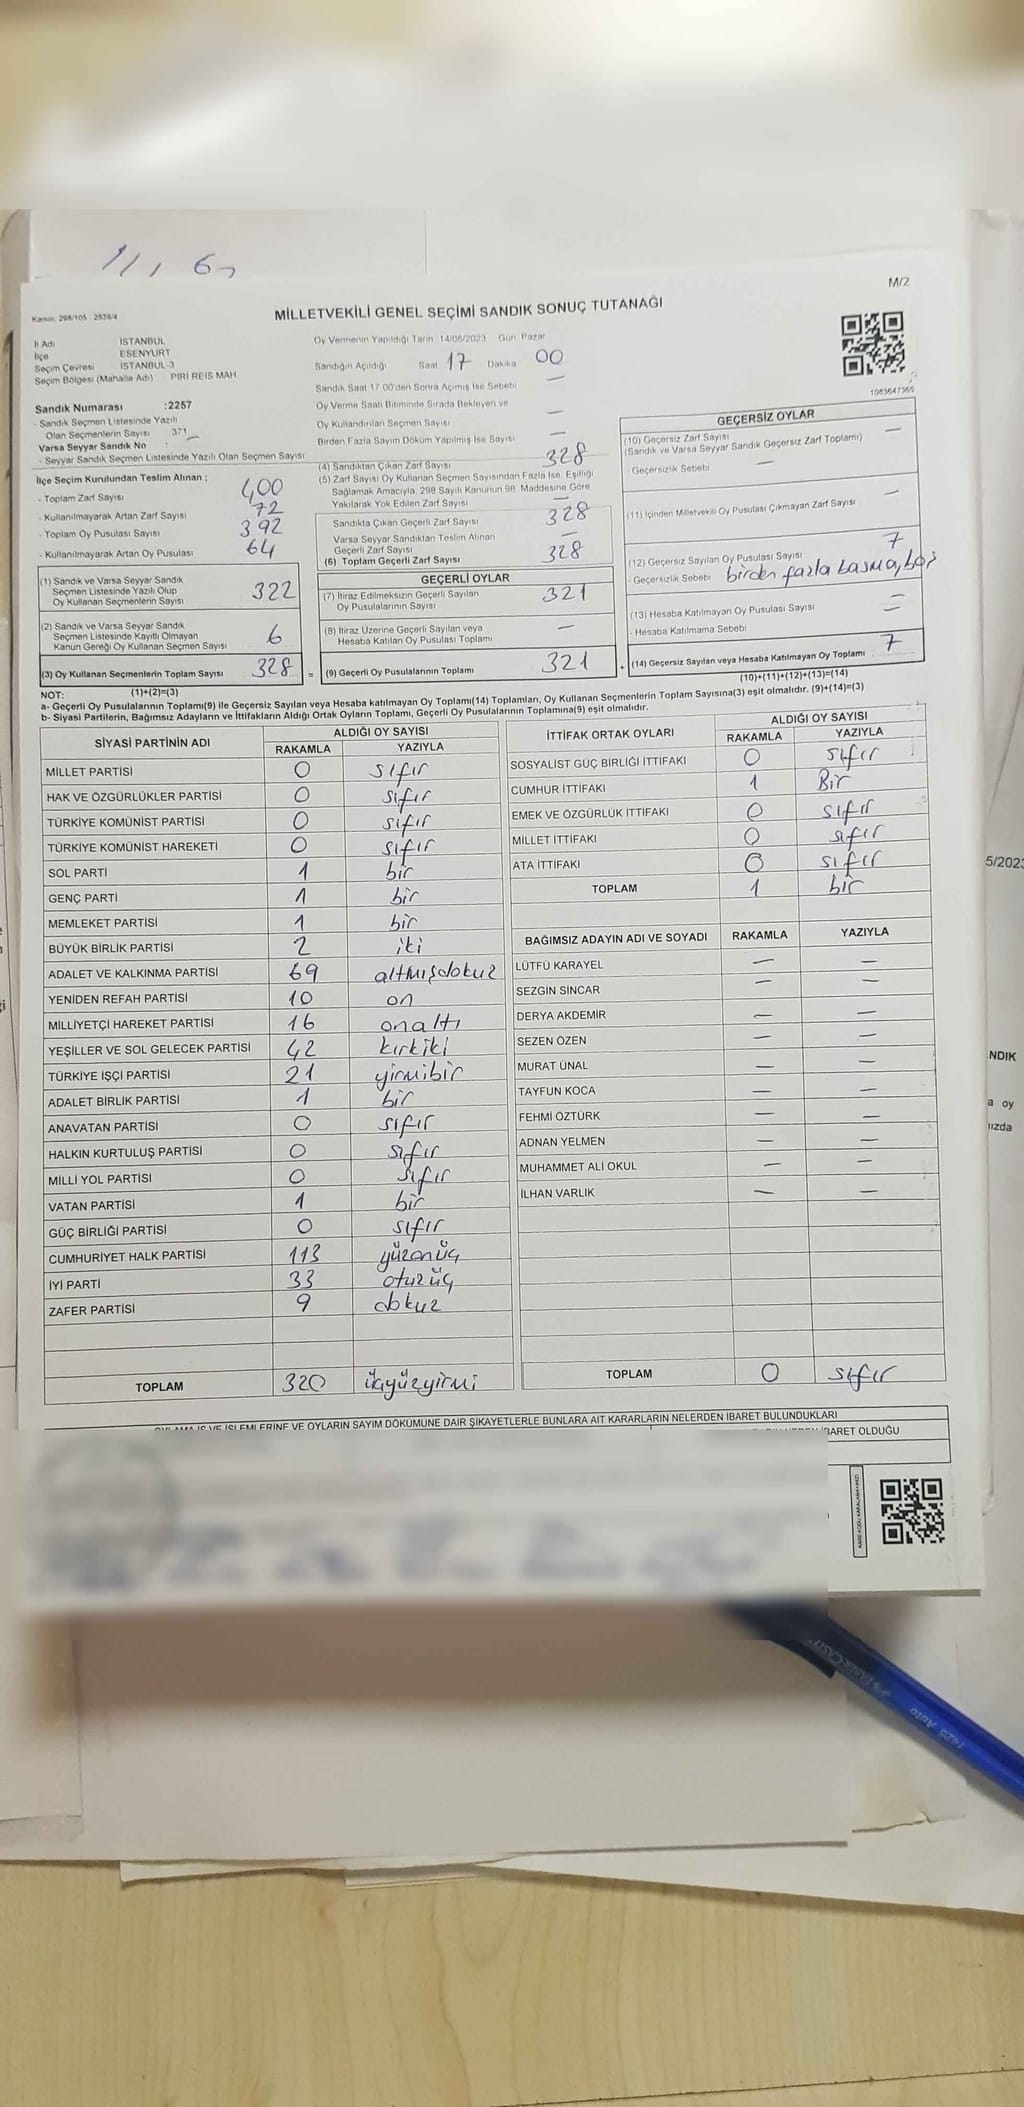 M/2
Kanun: 298/105 , 2839/4
MİLLETVEKİLİ GENEL SEÇİMİ SANDIK SONUÇ TUTANAĞI
1083647365
İl Adı İSTANBUL
İlçe ESENYURT
Seçim Çevresi İSTANBUL-3
Seçim Bölgesi (Mahalle Adı) PİRİ REİS MAH
Sandık Numarası :2257
- Sandık Seçmen Listesinde Yazılı
Olan Seçmenlerin Sayısı 371
Varsa Seyyar Sandık No :
- Seyyar Sandık Seçmen Listesinde Yazılı Olan Seçmen Sayısı
İlçe Seçim Kurulundan Teslim Alınan ;
- Toplam Zarf Sayısı 400
- Kullanılmayarak Artan Zarf Sayısı 72
- Toplam Oy Pusulası Sayısı 392
- Kullanılmayarak Artan Oy Pusulası 64
(1) Sandık ve Varsa Seyyar Sandık
Seçmen Listesinde Yazılı Olup
Oy Kullanan Seçmenlerin Sayısı 322
(2) Sandık ve Varsa Seyyar Sandık
Seçmen Listesinde Kayıtlı Olmayan
Kanun Gereği Oy Kullanan Seçmen Sayısı 6
(3) Oy Kullanan Seçmenlerin Toplam Sayısı 328
(1)+(2)=(3)
Oy Vermenin Yapıldığı Tarih 14/05/2023 Gün Pazar
Sandığın Açıldığı Saat 17 Dakika 00
Sandık Saat 17.00'den Sonra Açılmış İse Sebebi —
Oy Verme Saati Bitiminde Sırada Bekleyen ve
Oy Kullandırılan Seçmen Sayısı —
Birden Fazla Sayım Döküm Yapılmış İse Sayısı —
(4) Sandıktan Çıkan Zarf Sayısı 328
(5) Zarf Sayısı Oy Kullanan Seçmen Sayısından Fazla İse, Eşitliği
Sağlamak Amacıyla; 298 Sayılı Kanunun 98. Maddesine Göre
Yakılarak Yok Edilen Zarf Sayısı —
Sandıkta Çıkan Geçerli Zarf Sayısı 328
Varsa Seyyar Sandıktan Teslim Alınan
Geçerli Zarf Sayısı —
(6) Toplam Geçerli Zarf Sayısı 328
GEÇERLİ OYLAR
(7) İtiraz Edilmeksizin Geçerli Sayılan
Oy Pusulalarının Sayısı 321
(8) İtiraz Üzerine Geçerli Sayılan veya
Hesaba Katılan Oy Pusulası Toplamı —
= (9) Geçerli Oy Pusulalarının Toplamı 321
GEÇERSİZ OYLAR
(10) Geçersiz Zarf Sayısı —
(Sandık ve Varsa Seyyar Sandık Geçersiz Zarf Toplamı)
- Geçersizlik Sebebi —
(11) İçinden Milletvekili Oy Pusulası Çıkmayan Zarf Sayısı —
(12) Geçersiz Sayılan Oy Pusulası Sayısı 7
- Geçersizlik Sebebi birden fazla basma, boş
(13) Hesaba Katılmayan Oy Pusulası Sayısı —
- Hesaba Katılmama Sebebi —
+ (14) Geçersiz Sayılan veya Hesaba Katılmayan Oy Toplamı 7
(10)+(11)+(12)+(13)=(14)
NOT:
a- Geçerli Oy Pusulalarının Toplamı(9) ile Geçersiz Sayılan veya Hesaba katılmayan Oy Toplamı(14) Toplamları, Oy Kullanan Seçmenlerin Toplam Sayısına(3) eşit olmalıdır. (9)+(14)=(3)
b- Siyasi Partilerin, Bağımsız Adayların ve İttifakların Aldığı Ortak Oyların Toplamı, Geçerli Oy Pusulalarının Toplamına(9) eşit olmalıdır.
SİYASİ PARTİNİN ADI ALDIĞI OY SAYISI
RAKAMLA YAZIYLA
MİLLET PARTİSİ 0 sıfır
HAK VE ÖZGÜRLÜKLER PARTİSİ 0 sıfır
TÜRKİYE KOMÜNİST PARTİSİ 0 sıfır
TÜRKİYE KOMÜNİST HAREKETİ 0 sıfır
SOL PARTİ 1 bir
GENÇ PARTİ 1 bir
MEMLEKET PARTİSİ 1 bir
BÜYÜK BİRLİK PARTİSİ 2 iki
ADALET VE KALKINMA PARTİSİ 69 altmışdokuz
YENİDEN REFAH PARTİSİ 10 on
MİLLİYETÇİ HAREKET PARTİSİ 16 onaltı
YEŞİLLER VE SOL GELECEK PARTİSİ 42 kırkiki
TÜRKİYE İŞÇİ PARTİSİ 21 yirmibir
ADALET BİRLİK PARTİSİ 1 bir
ANAVATAN PARTİSİ 0 sıfır
HALKIN KURTULUŞ PARTİSİ 0 sıfır
MİLLİ YOL PARTİSİ 0 sıfır
VATAN PARTİSİ 1 bir
GÜÇ BİRLİĞİ PARTİSİ 0 sıfır
CUMHURİYET HALK PARTİSİ 113 yüzonüç
İYİ PARTİ 33 otuzüç
ZAFER PARTİSİ 9 dokuz
TOPLAM 320 üçyüzyirmi
İTTİFAK ORTAK OYLARI ALDIĞI OY SAYISI
RAKAMLA YAZIYLA
SOSYALİST GÜÇ BİRLİĞİ İTTİFAKI 0 sıfır
CUMHUR İTTİFAKI 1 Bir
EMEK VE ÖZGÜRLÜK İTTİFAKI 0 sıfır
MİLLET İTTİFAKI 0 sıfır
ATA İTTİFAKI 0 sıfır
TOPLAM 1 bir
BAĞIMSIZ ADAYIN ADI VE SOYADI RAKAMLA YAZIYLA
LÜTFÜ KARAYEL — —
SEZGİN SİNCAR — —
DERYA AKDEMİR — —
SEZEN ÖZEN — —
MURAT ÜNAL — —
TAYFUN KOCA — —
FEHMİ ÖZTÜRK — —
ADNAN YELMEN — —
MUHAMMET ALİ OKUL — —
İLHAN VARLIK — —
TOPLAM 0 sıfır
OYLAMA İŞ VE İŞLEMLERİNE VE OYLARIN SAYIM DÖKÜMÜNE DAİR ŞİKAYETLERLE BUNLARA AİT KARARLARIN NELERDEN İBARET BULUNDUKLARI
İBARET OLDUĞU
5/2023
NDIK
a oy
ızda
1425 Auto